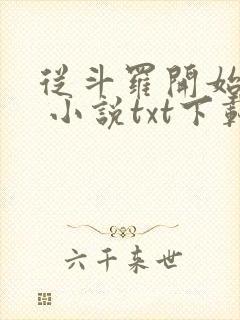 從斗羅開始
小說txt下載
六千来世